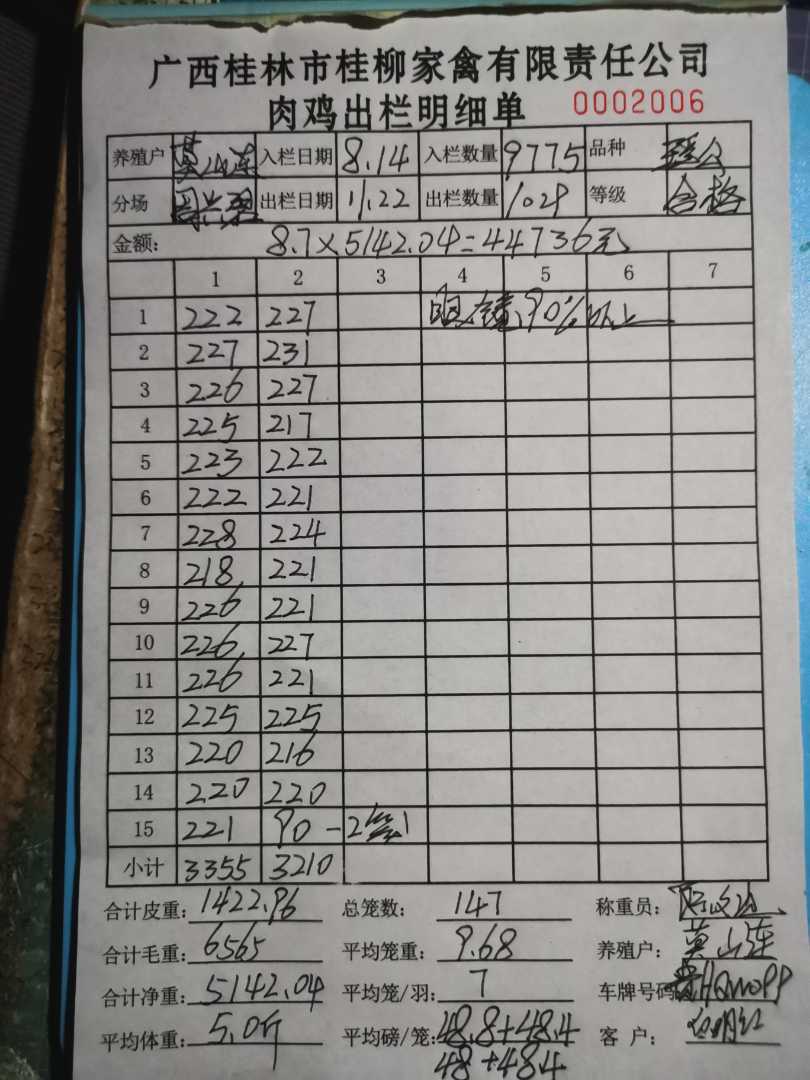 广西桂林市桂柳家禽有限责任公司
肉鸡出栏明细单 0002006
养殖户 莫山连 入栏日期 8.14 入栏数量 9775 品种
分场 出栏日期 11.22 出栏数量 1029 等级 合格
金额: 8.7×5142.04=44736元
1 2 3 4 5 6 7
1 222 227 90%以上
2 227 231
3 226 227
4 225 217
5 223 222
6 222 221
7 228 224
8 218 221
9 226 221
10 226 227
11 226 221
12 225 225
13 220 216
14 220 220
15 221 90-2笼
小计 3355 3210
合计皮重: 1422.96 总笼数: 147 称重员:
合计毛重: 6565 平均笼重: 9.68 养殖户: 莫山连
合计净重: 5142.04 平均笼/羽: 7 车牌号码
平均体重: 5.0斤 平均磅/笼: 48.8+48.4 客户:
48+48.4